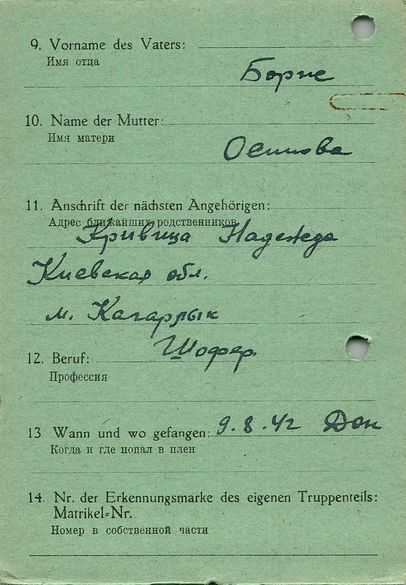 9. Vorname des Vaters:
Имя отца
Борис
10. Name der Mutter:
Имя матери
Осипова
11. Anschrift der nächsten Angehörigen:
Адрес ближайших родственников
Кривица Надежда
Киевская обл.
м. Кагарлык
12. Beruf: Шофер.
Профессия
13 Wann und wo gefangen: 9.8.42 Дон
Когда и где попал в плен
14. Nr. der Erkennungsmarke des eigenen Truppenteils:
Matrikel-Nr.
Номер в собственной части